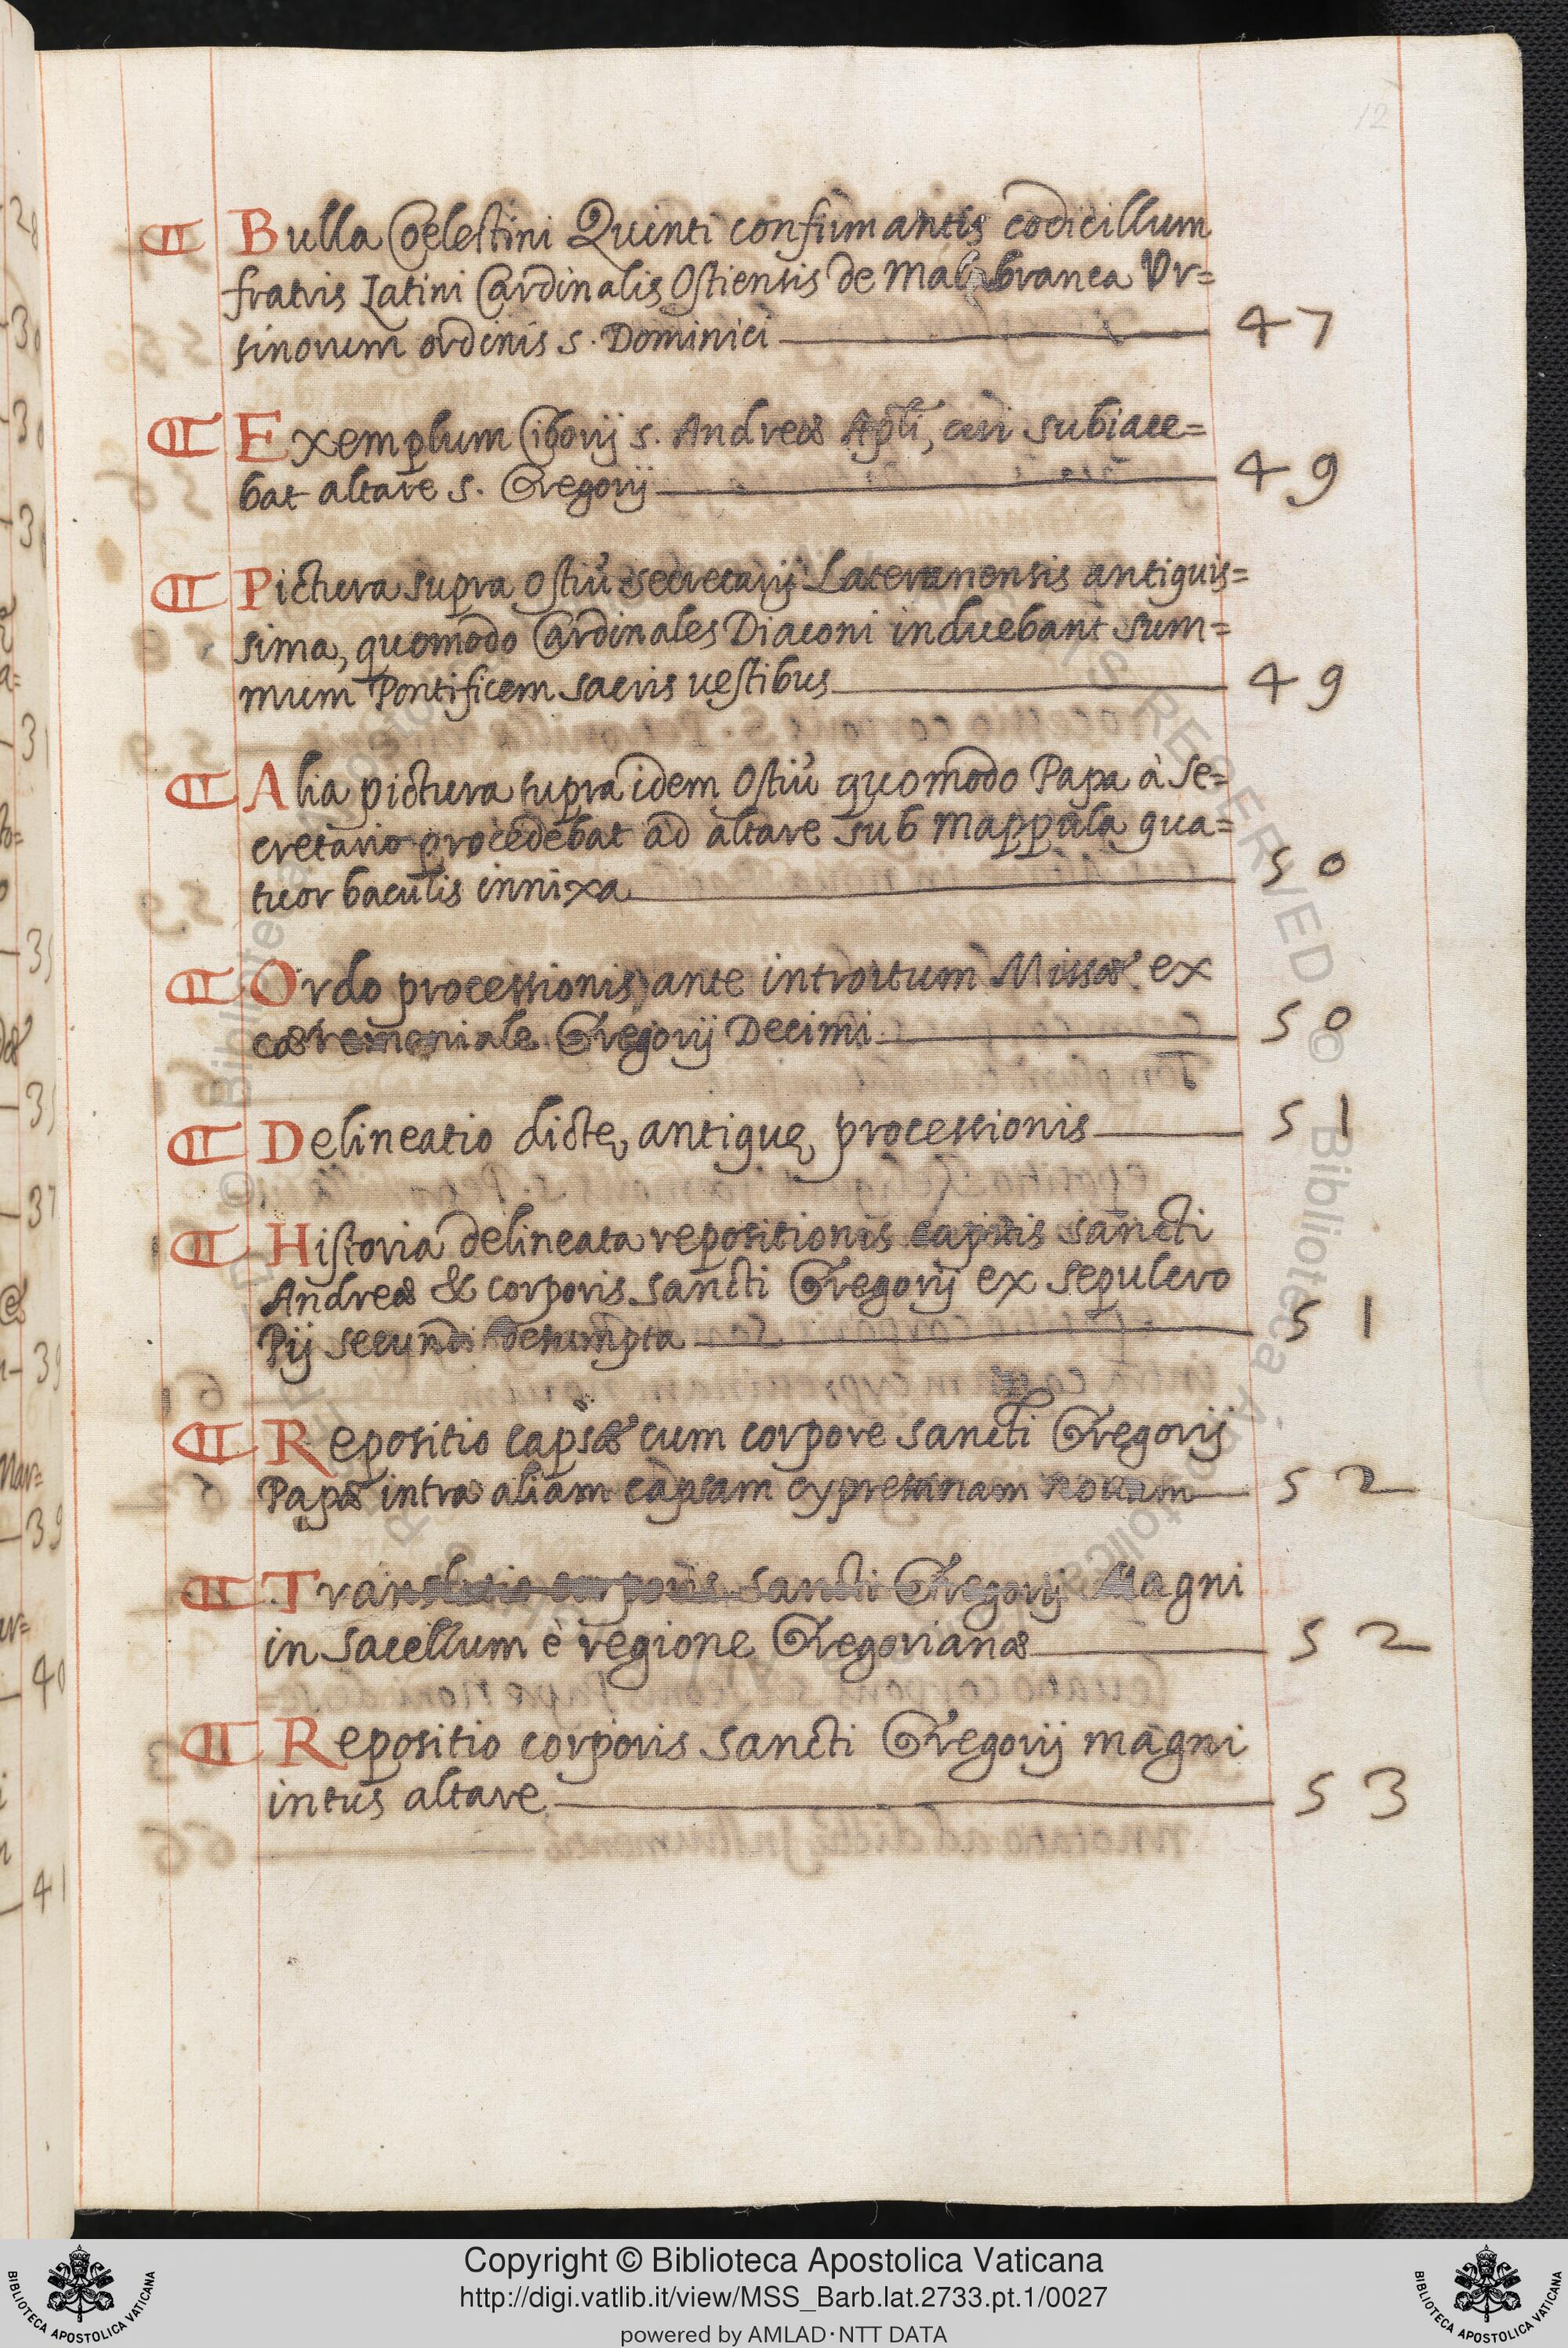 12
¶ Bulla Coelestini Quinti confirmantis codicillum
fratris Latini Cardinalis Ostiensis de Malabranca Vr=
sinorum ordinis s. Dominici 47
¶ Exemplum Ciborij s. Andreæ Apli, cui subiace=
bat altare s. Gregorij 49
¶ Pictura supra Ostiũ secretarij Lateranensis antiquis=
sima, quomodo Cardinales Diaconi induebant sum=
mum Pontificem sacris vestibus 49
¶ Alia pictura supra idem Ostiũ quomodo Papa à Se=
cretario procedebat ad altare sub mappula qua=
tuor baculis innixa 50
¶ Ordo processionis ante introitum Missæ ex
cæremoniale Gregorij Decimi 50
¶ Delineatio dictę antiquę processionis 51
¶ Historia delineata repositionis capitis sancti
Andreæ & corporis sancti Gregorij ex sepulcro
Pij secundi desumpta 51
¶ Repositio capsæ cum corpore sancti Gregorij
Papæ intra aliam capsam cypressinam novam 52
¶ Translatio corporis sancti Gregorij Magni
in sacellum è regione Gregorianæ 52
¶ Repositio corporis sancti Gregorij magni
intus altare 53
Copyright © Biblioteca Apostolica Vaticana
http://digi.vatlib.it/view/MSS_Barb.lat.2733.pt.1/0027
powered by AMLAD·NTT DATA
BIBLIOTECA APOSTOLICA VATICANA
BIBLIOTECA APOSTOLICA VATICANA